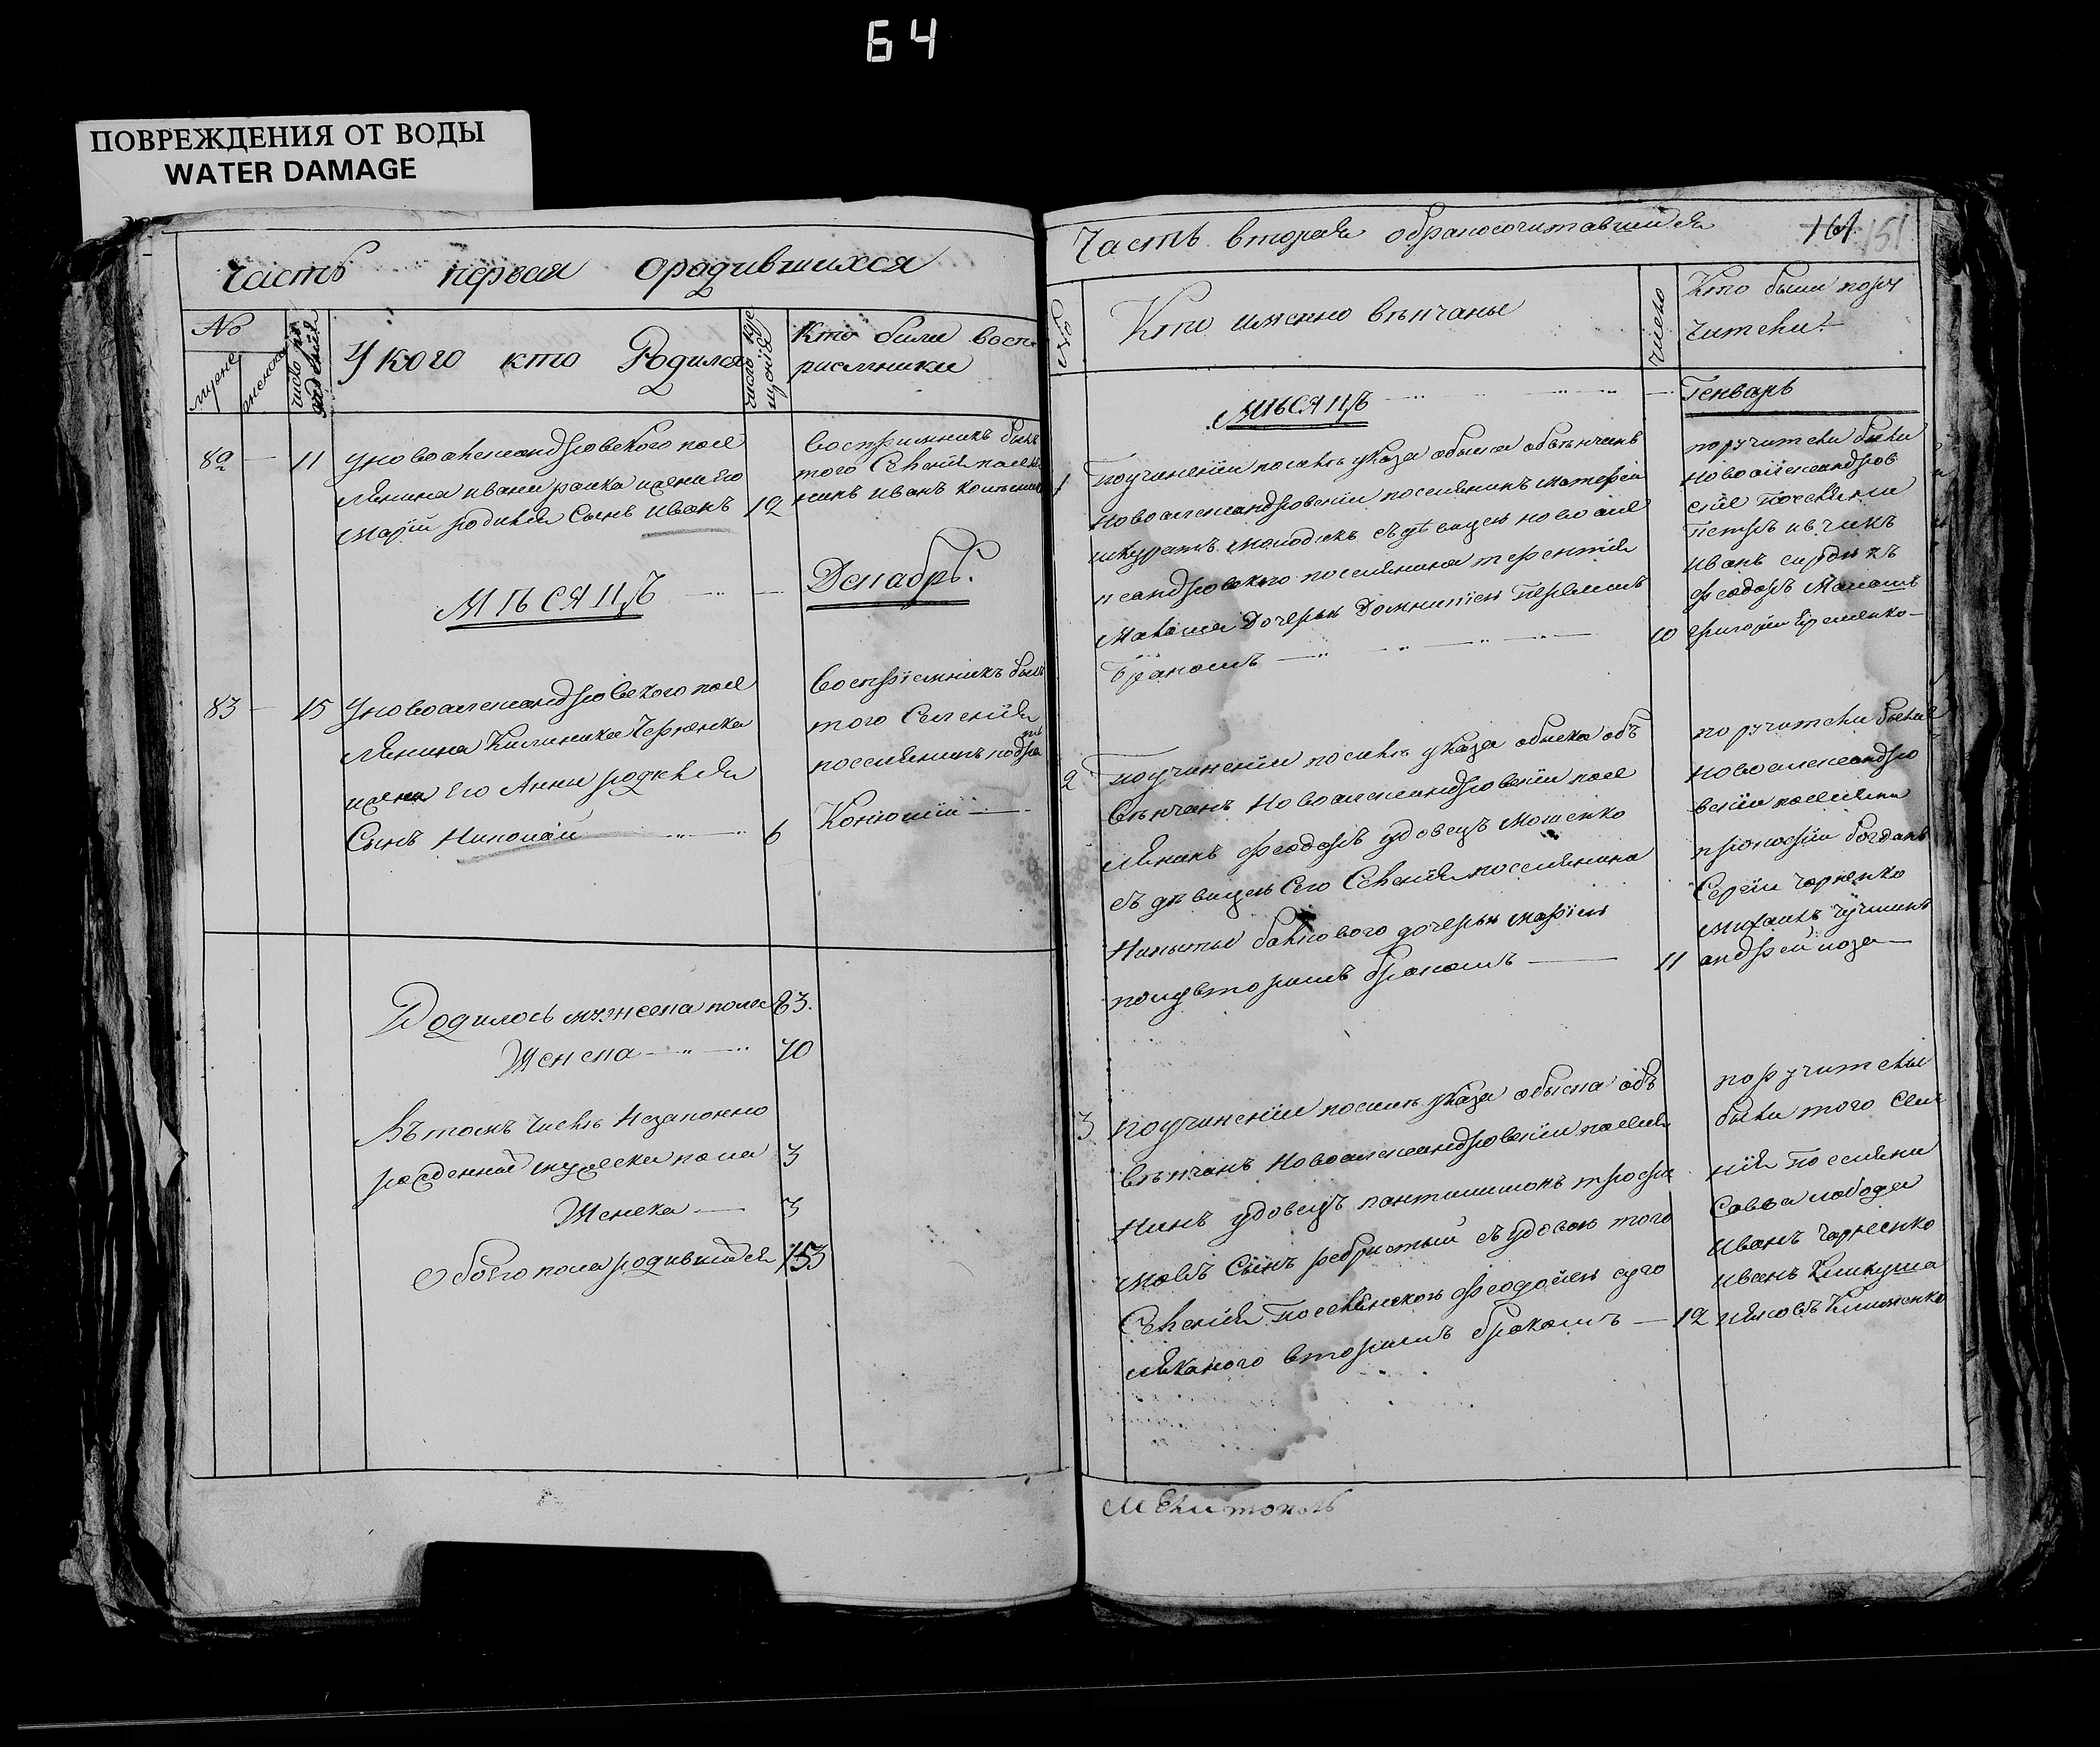 64
ПОВРЕЖДЕНИЯ ОТ ВОДЫ
WATER DAMAGE
Часть первая ородившихся
No
мужеска
женска
число рождения
У кого кто Родился
число крещения
Кто били восп
риемники
82 — 11 Уновоалександровского посе
лянина ивана
Марiи родился Сынъ иванъ 12
восприемникъ былъ
того Селенiя поселя
нинъ иванъ
МѢСЯЦЪ — Декабрь.
83 — 15 Уновоалександровского посе
лянина Калиника Черненка
жены Его Анны родился
Сынъ Николай 6
воспрiемникъ былъ
того Селенiя
поселянинъ
Родилось мужеска пола 83.
Женска 70
Въ томъ числѣ незаконно
рожденныхъ мужеска пола 3
Женска — 3
Обоего пола родившихся 153
Часть вторая обракосочитавшихся
161 151
No
Кто именно вѣнчаны
число
Кто были пору
чители
МѢСЯЦЪ — Генварь
1 поучиненiи послѣ указа обыска обвѣнчанъ
новоалександровскiи поселянинъ
молодикъ съ девицею новоале
ксандровского поселянина терентiя
дочерью Домникiею Первымъ
Бракомъ — 10
поручители были
новоалександров
скiе поселяни
Петръ
иванъ
феодоръ
григорiи Еременко
2 поучиненiи послѣ указа обыска объ
вѣнчанъ Новоалександровскiи посе
лянинъ феодоръ удовецъ Мошенко
съ девицею Сего Селенiя поселянина
Никиты дочерью марiею
полувторымъ бракомъ — 11
поручители были
новоалександро
вскiи поселяни
прокофiи богданъ
Сергiи Чорненко
михаилъ
андреи коза —
3 поучиненiи послѣ указа обыска объ
вѣнчанъ Новоалександровскiи поселя
нинъ удовецъ пантилимонъ трофи
мовъ Сынъ ребристый съ удовою того
Селенiя Поселянскою феодосiею
вторымъ бракомъ — 12
поручители
были того Селе
нiя поселяни
Савва лобода
иванъ Чорненко
иванъ
яковъ Клименко
Мелитополь